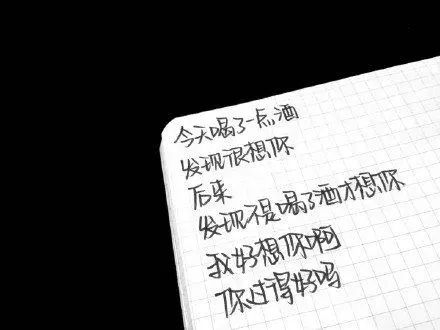 今天喝了一点酒
发现很想你
后来
发现不是喝了酒才想你
我好想你啊
你过得好吗